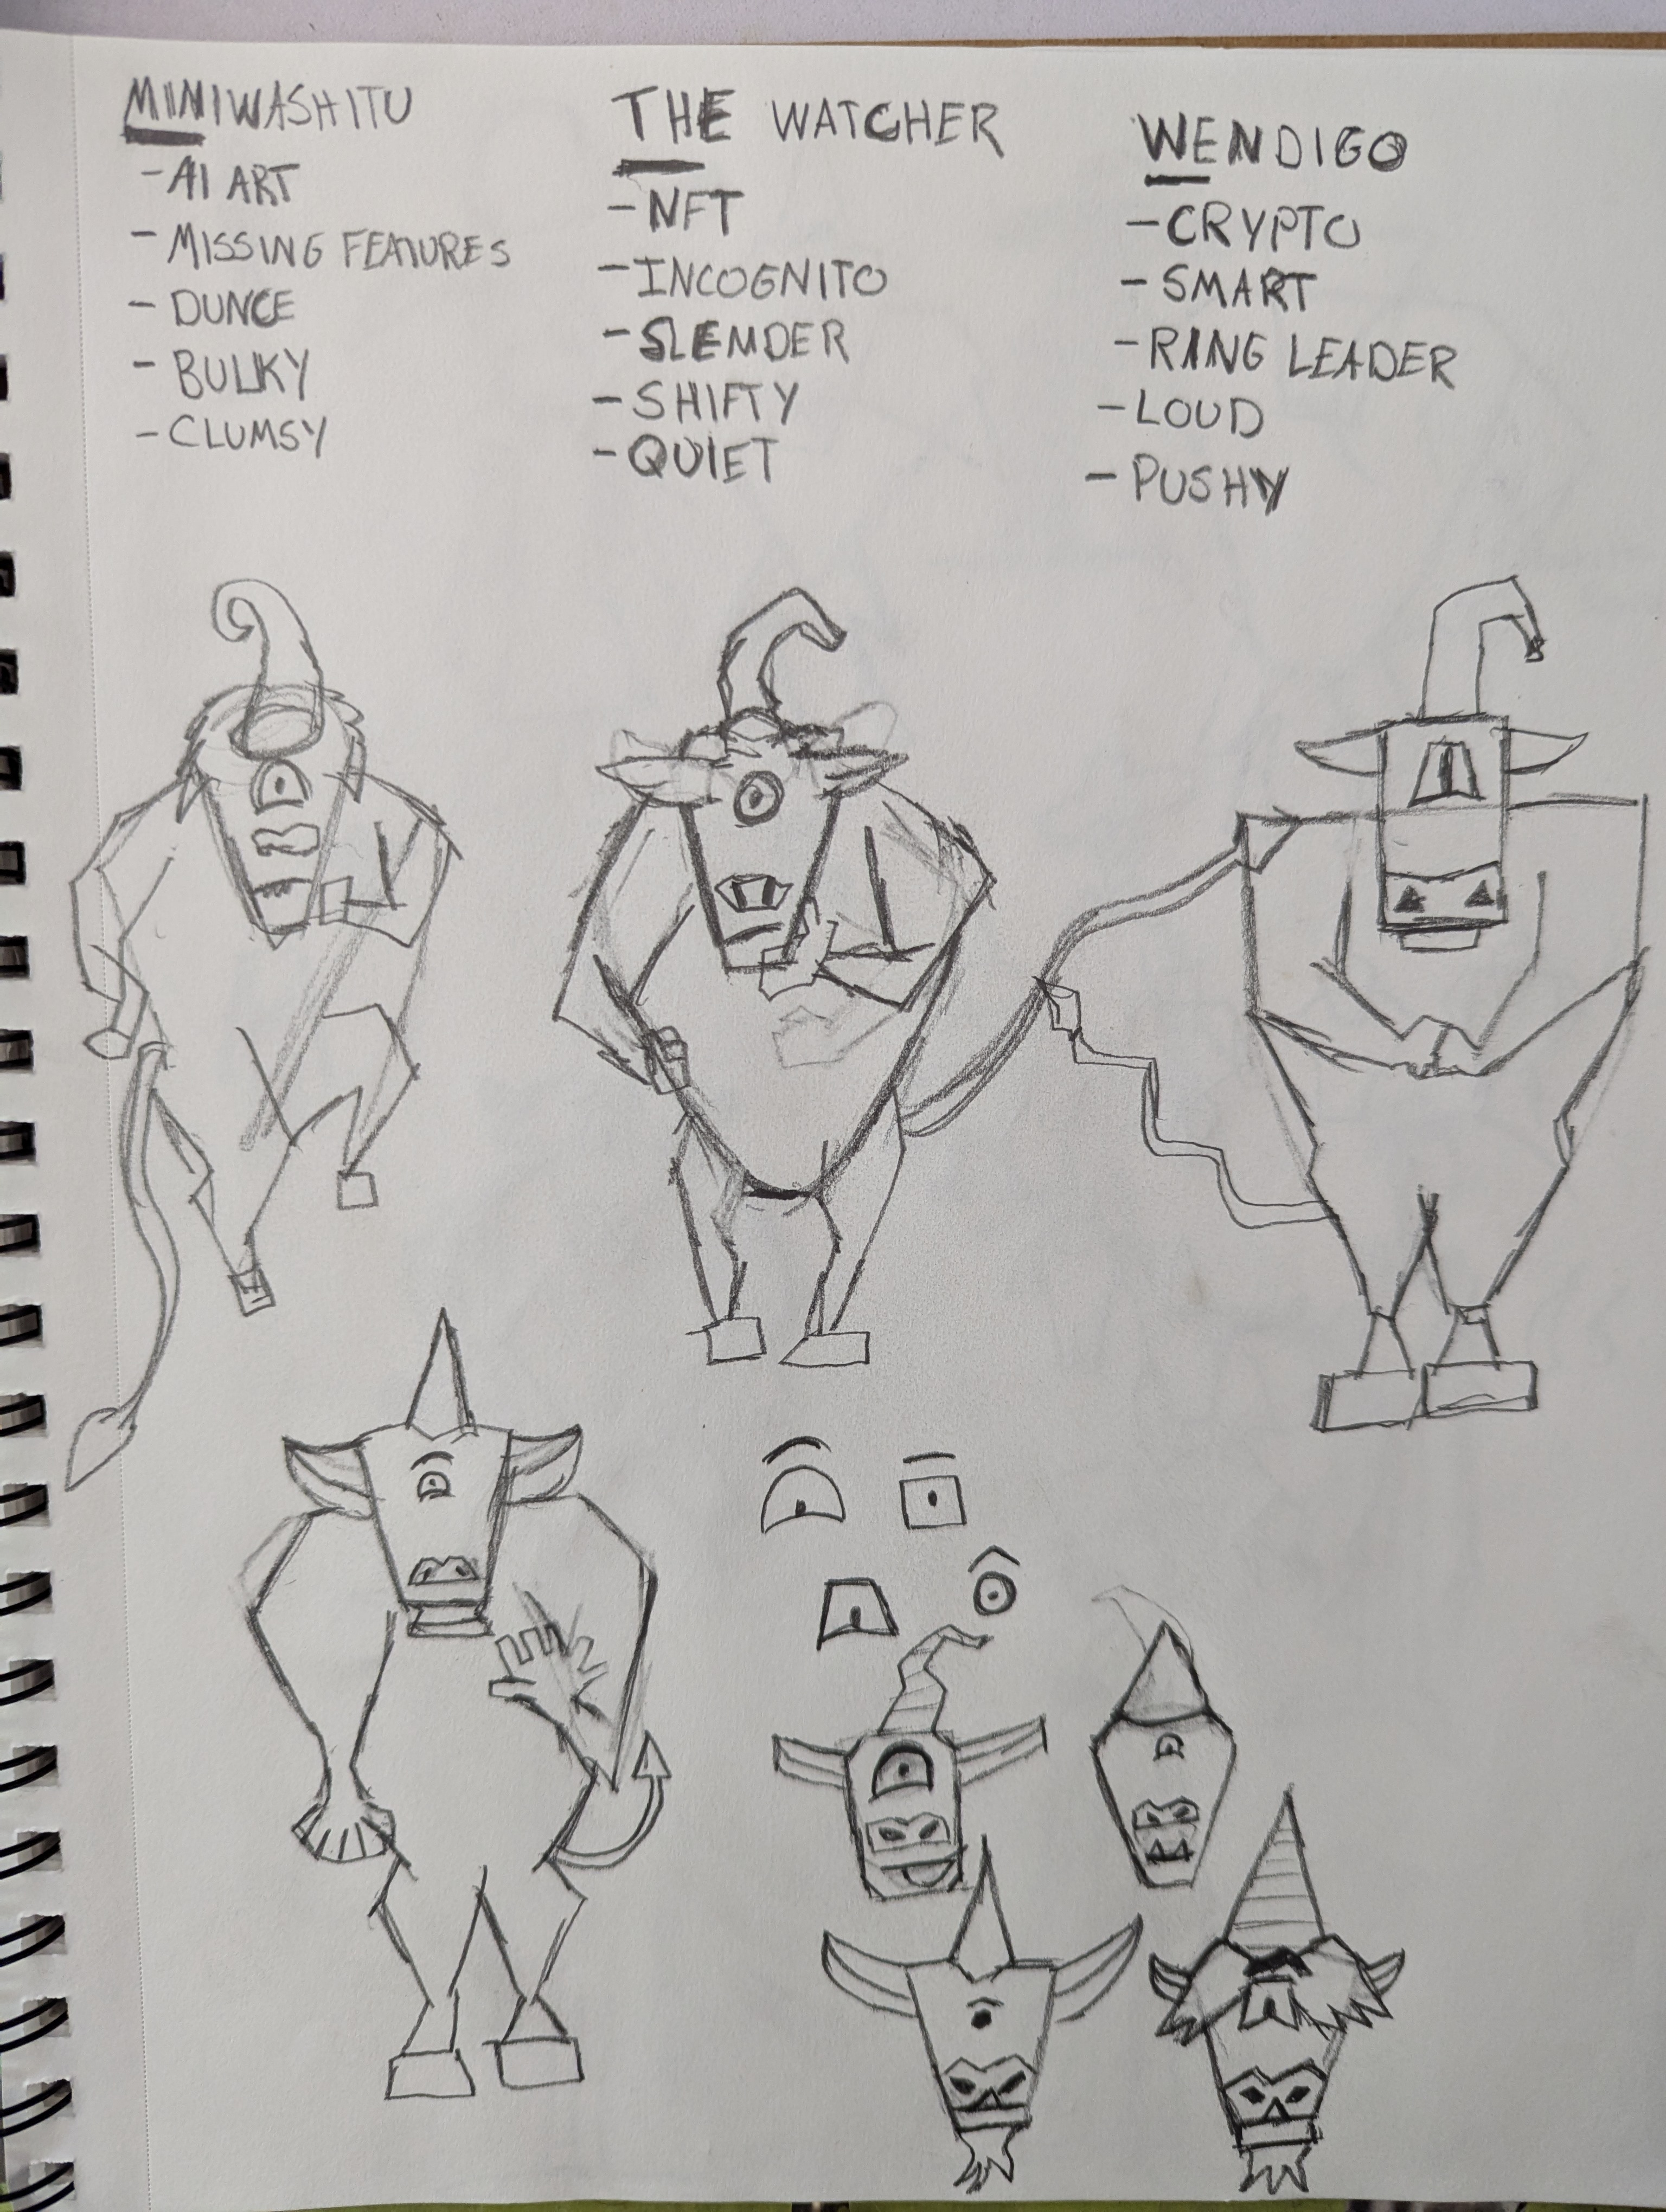 MINIWASHITU
- AI ART
- MISSING FEATURES
- DUNCE
- BULKY
- CLUMSY
THE WATCHER
- NFT
- INCOGNITO
- SLENDER
- SHIFTY
- QUIET
WENDIGO
- CRYPTO
- SMART
- RING LEADER
- LOUD
- PUSHY